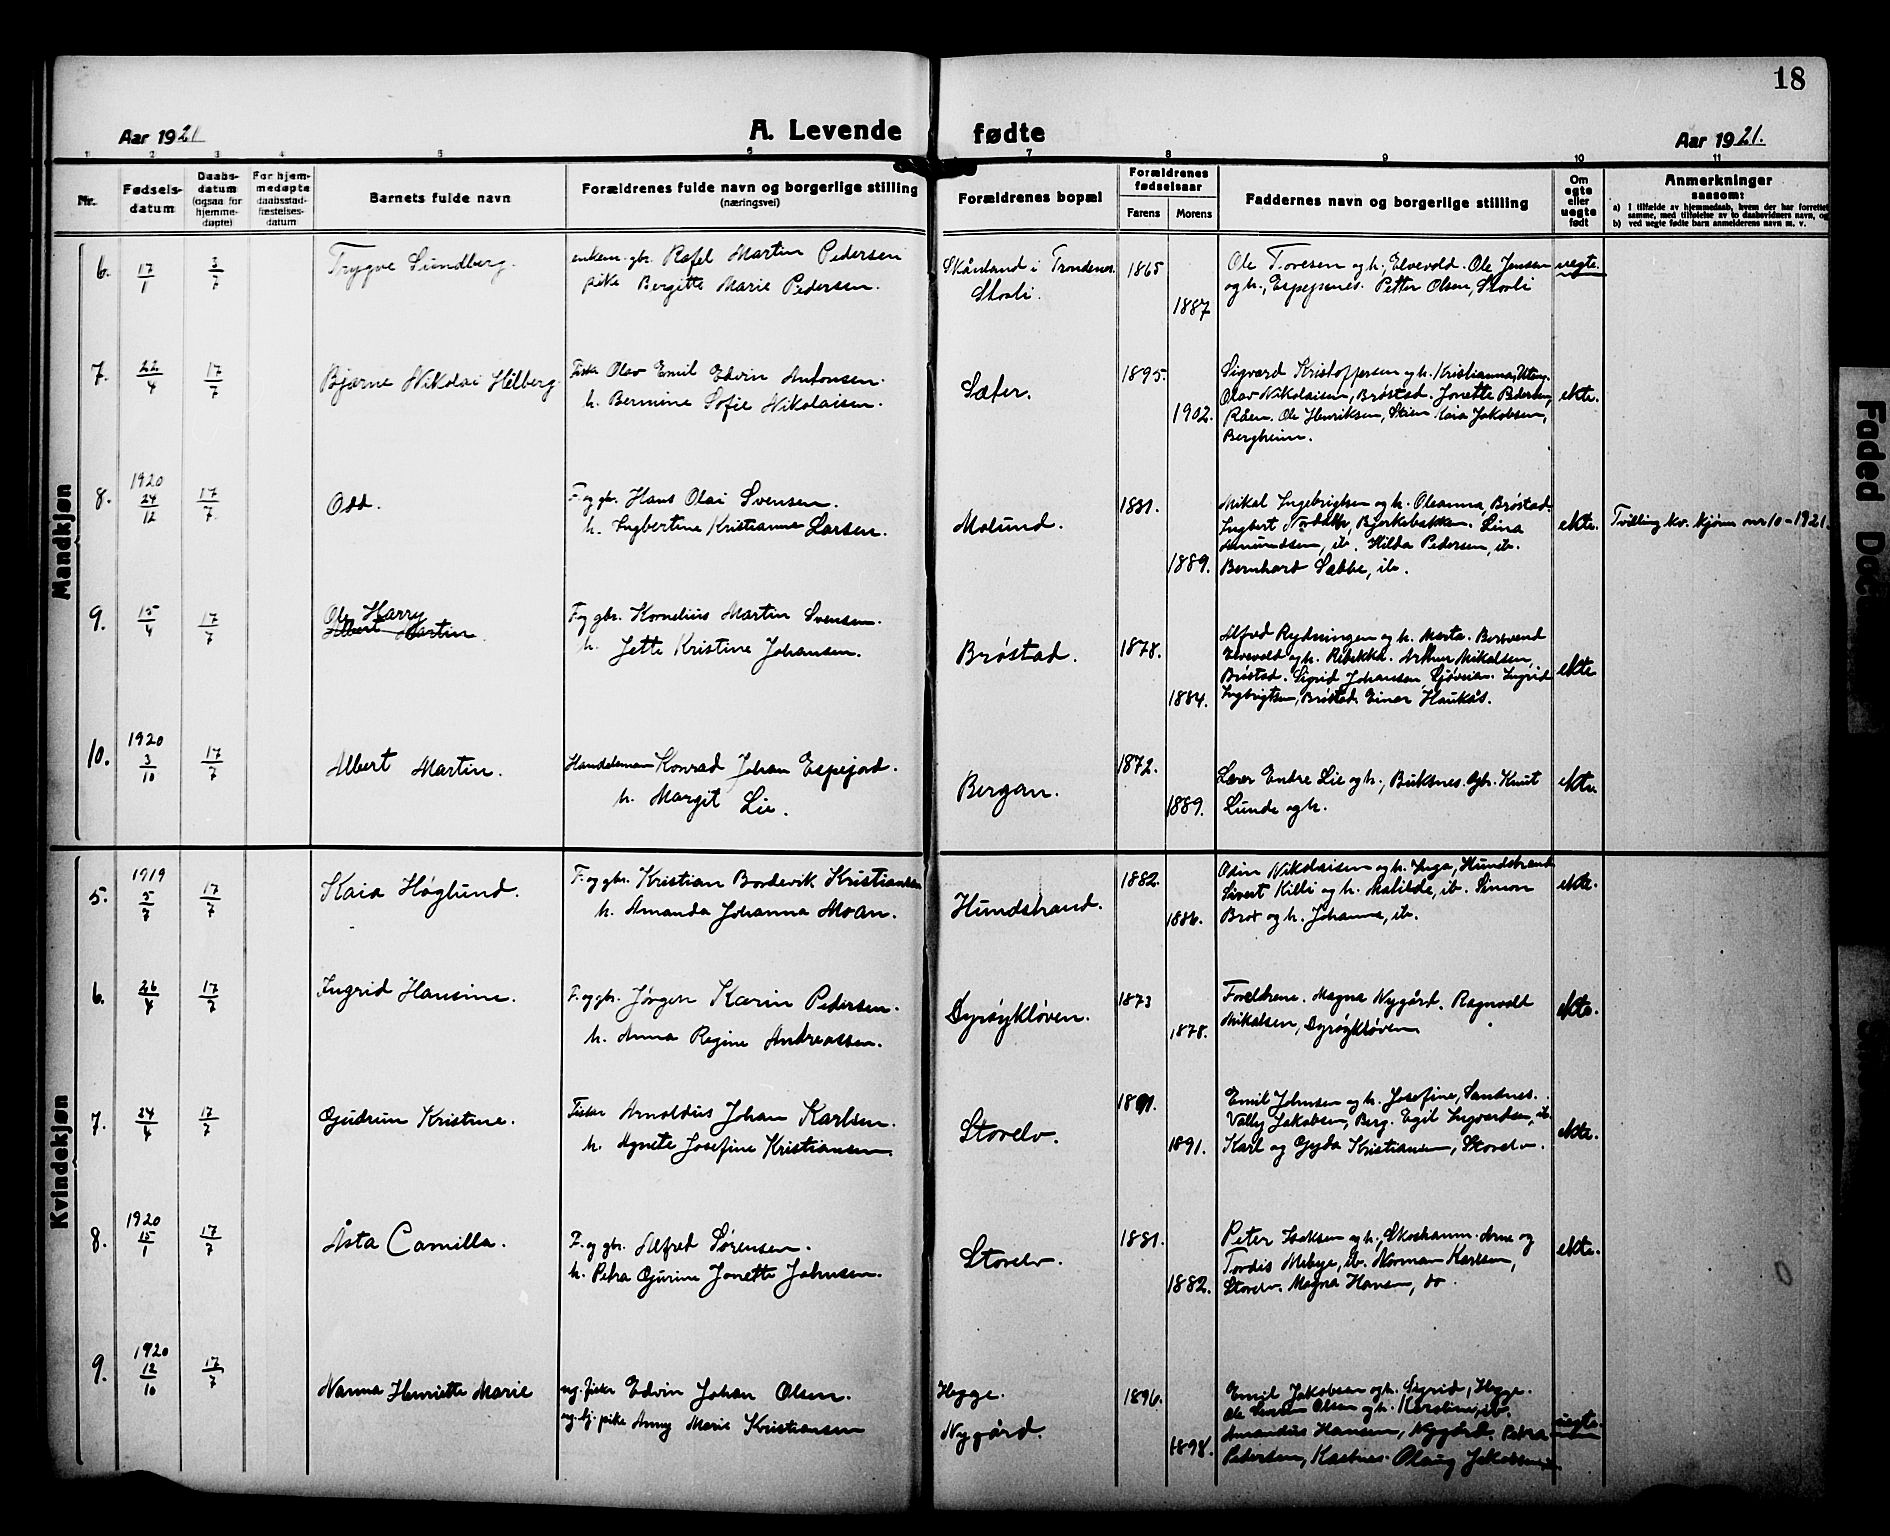 18
Aar 1921
A. Levende fødte
Aar 1921.
1 2 3 4 5 6 7 8 9 10 11
Nr.
Fødsels-
datum
Daabs-
datum
(ogsaa for
hjemme-
døpte)
For hjem-
medøpte
daabsstad-
fæstelses-
datum
Barnets fulde navn
Forældrenes fulde navn og borgerlige stilling
(næringsvei)
Forældrenes bopæl
Forældrenes
fødselsaar
Farens Morens
Faddernes navn og borgerlige stilling
Om
egte
eller
uegte
født
Anmerkninger
saasom:
a) I tilfælde av hjemmedaab, hvem der har forrettet
samme, med tilføielse av to daabsvidners navn, og
b) ved uegte fødte barn anmelderens navn m. v.
Mandkjøn
6. 17/1 3/7 Trygve Sundberg.
enkem. gbr. Rafel Martin Pedersen
pike Bergitte Marie Pedersen.
Skånland i Trondenes
Storli.
1865
1887
Ole Toresen og h., Elvevold. Ole Jensen
og h., Espejsnes. Petter Olsen, Storli
uegte.
7. 22/4 17/7 Bjarne Nikolai Hilberg.
Fisker Olav Emil Edvin Antonsen.
h. Bermine Sofie Nikolaisen.
Sæter.
1895.
1902.
Sigvard Kristoffersen og h. Kristianna,
Olav Nikolaisen, Brøstad. Jonette Pedersen,
Råen. Ole Henriksen, Stien Kaia Jakobsen,
Bergheim.
ekte.
8. 1920 24/12 17/7 Odd.
F. og gbr. Hans Olai Svensen.
h. Ingbertine Kristianne Larsen.
Molund.
1881.
1889.
Mikal Ingebrigtsen og h. Oleanna, Brøstad.
Ingbert, Bjørkebakken. Lina
Amundsen, ib. Hilda Pedersen, ib.
Bernhard Sæbbe, ib.
ekte.
Tvilling kv. kjønn nr 10-1921.
9. 15/4 17/7 Ole Harry
Albert Martin.
F. og gbr. Kornelius Martin Svensen.
h. Jette Kristine Johansen.
Brøstad.
1878.
1884.
Alfred Rydningen og h. Marta.
Elvevold og h. Rebekka. Arthur Mikalsen,
Brøstad. Sigrid Johansen, Sjøveien. Ingrid
Ingbrigtsen, Brøstad. Einar Haukås.
ekte
10. 1920 3/10 17/7 Albert Martin.
Handelsmann Konrad Johan Espejord.
h. Margit Lie.
Bergan.
1872.
1889.
Lærer Endre Lie og h., Buksnes. Gbr. Knut
Lunde og h.
ekte
Kvindekjøn
5. 1919 5/7 17/7 Kaia Høglund.
F. og gbr. Kristian Bordevik Kristiansen
h. Amanda Johanna Moan.
Hundstrand.
1882.
1886.
Odin Nikolaisen og h. Inga, Hundstrand
Sivert Killi og h. Matilde, ib. Simon
Brox og h. Johanna, ib.
ekte.
6. 26/4 17/7 Ingrid Hansine.
F. og gbr. Jørgen Karin Pedersen.
h. Anna Regine Andreassen.
Dyrøykløven.
1873
1878.
Foreldrene. Magna Nygård. Ragnvald
Mikalsen, Dyrøykløven
ekte.
7. 24/4 17/7 Gudrun Kristine.
Fisker Arnoldus Johan Karlsen.
h. Agnete Josefine Kristiansen.
Storelv.
1891.
1891.
Emil Johnsen og h. Josefine, Sandnes.
Valby Jakobsen, Berg. Egil Ingvardsen, ib.
Karl og Gyda Kristiansen, Storelv.
ekte.
8. 1920 15/1 17/7 Åsta Camilla.
F. og gbr. Alfred Sørensen.
h. Petra Gurine Jonette Johnsen.
Storelv.
1881.
1882.
Peter Isaksen og h., Skoshamn. Arne og
Tordis Mebye, ib. Norman Karlsen,
Storelv. Magna Hansen, do
ekte.
9. 1920 12/10 17/7 Nanna Henriette Marie
ug. fisker Edvin Johan Olsen.
ug. tj. pike Anny Marie Kristiansen
Hegge.
Nygård.
1896.
1898.
Emil Jakobsen og h. Sigrid, Hegge.
Ole Olsen og h. Karoline, ib.
Amandus Hansen, Nygård. Petra
Pedersen, Kastnes. Olaug Jakobsen
uegte.
Faded Doc